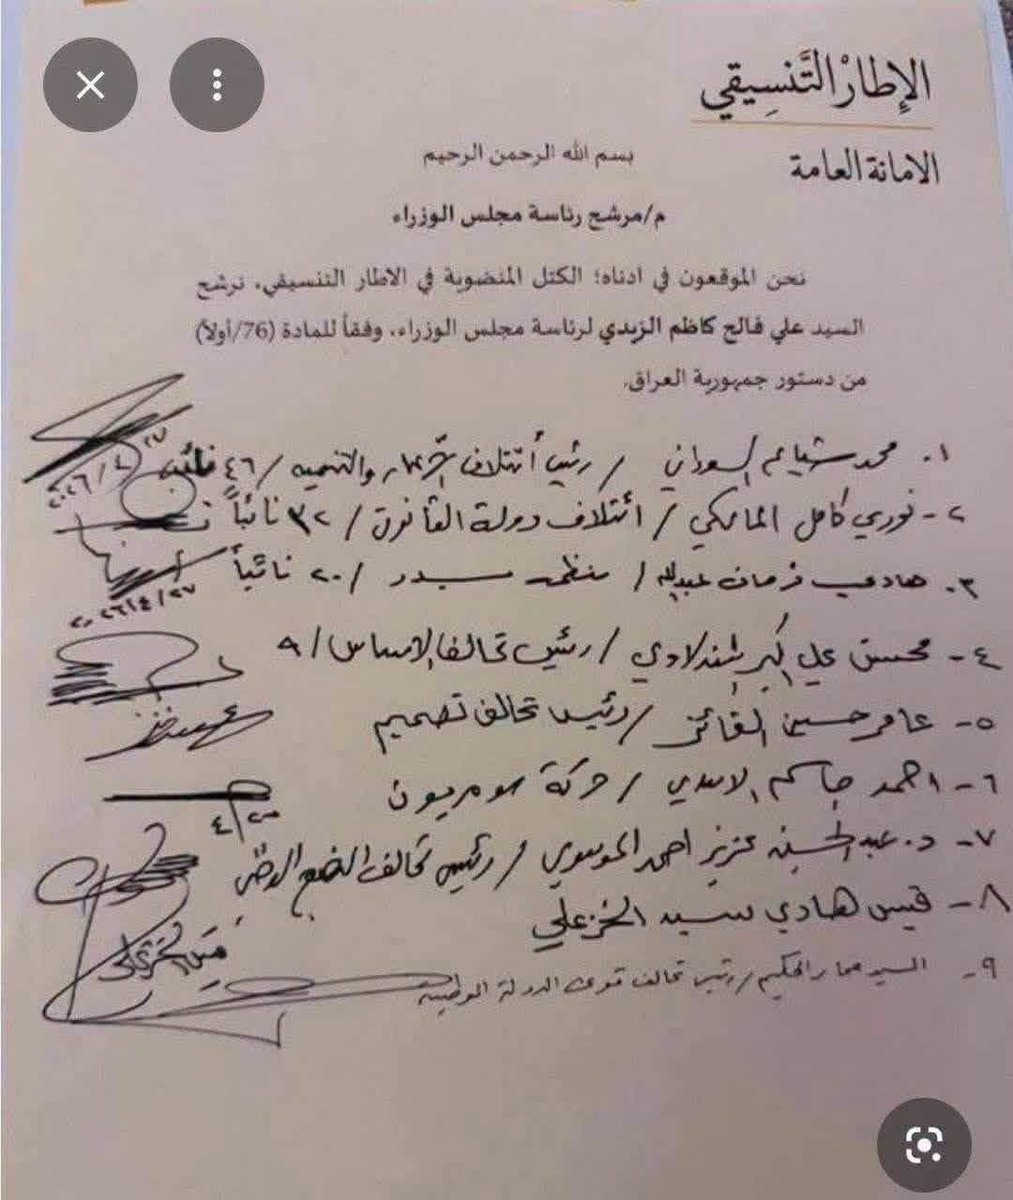 الإطار التنسيقي
الامانة العامة
بسم الله الرحمن الرحيم
م/مرشح رئاسة مجلس الوزراء
نحن الموقعون في ادناه؛ الكتل المنضوية في الاطار التنسيقي، نرشح
السيد علي فالح كاظم الزيدي لرئاسة مجلس الوزراء، وفقاً للمادة (76/أولاً)
من دستور جمهورية العراق.
١. محمد شياع السوداني / رئيس أئتلاف والتنميه / ٤٦ نائب
٢- نوري كامل المالكي / ائتلاف دولة القانون / ٣٢ نائباً
٣. هادي فرحان عبدالله / منظمة بدر / ٢٠ نائباً
٢٠٢٦/٤/٢٧
٤- محسن علي اكبر / رئيس تحالف الاساس / ٩
٥- عامر حسين الفائز / رئيس تحالف تصميم
٦- احمد جاسم الاسدي / حركة سومريون
٧- د. عبد الحسين عزيز احمد الموسوي / رئيس تحالف النهج الوطني
٨- قيس هادي سيد الخزعلي
٩- السيد عمار الحكيم / رئيس تحالف قوى الدولة الوطنية